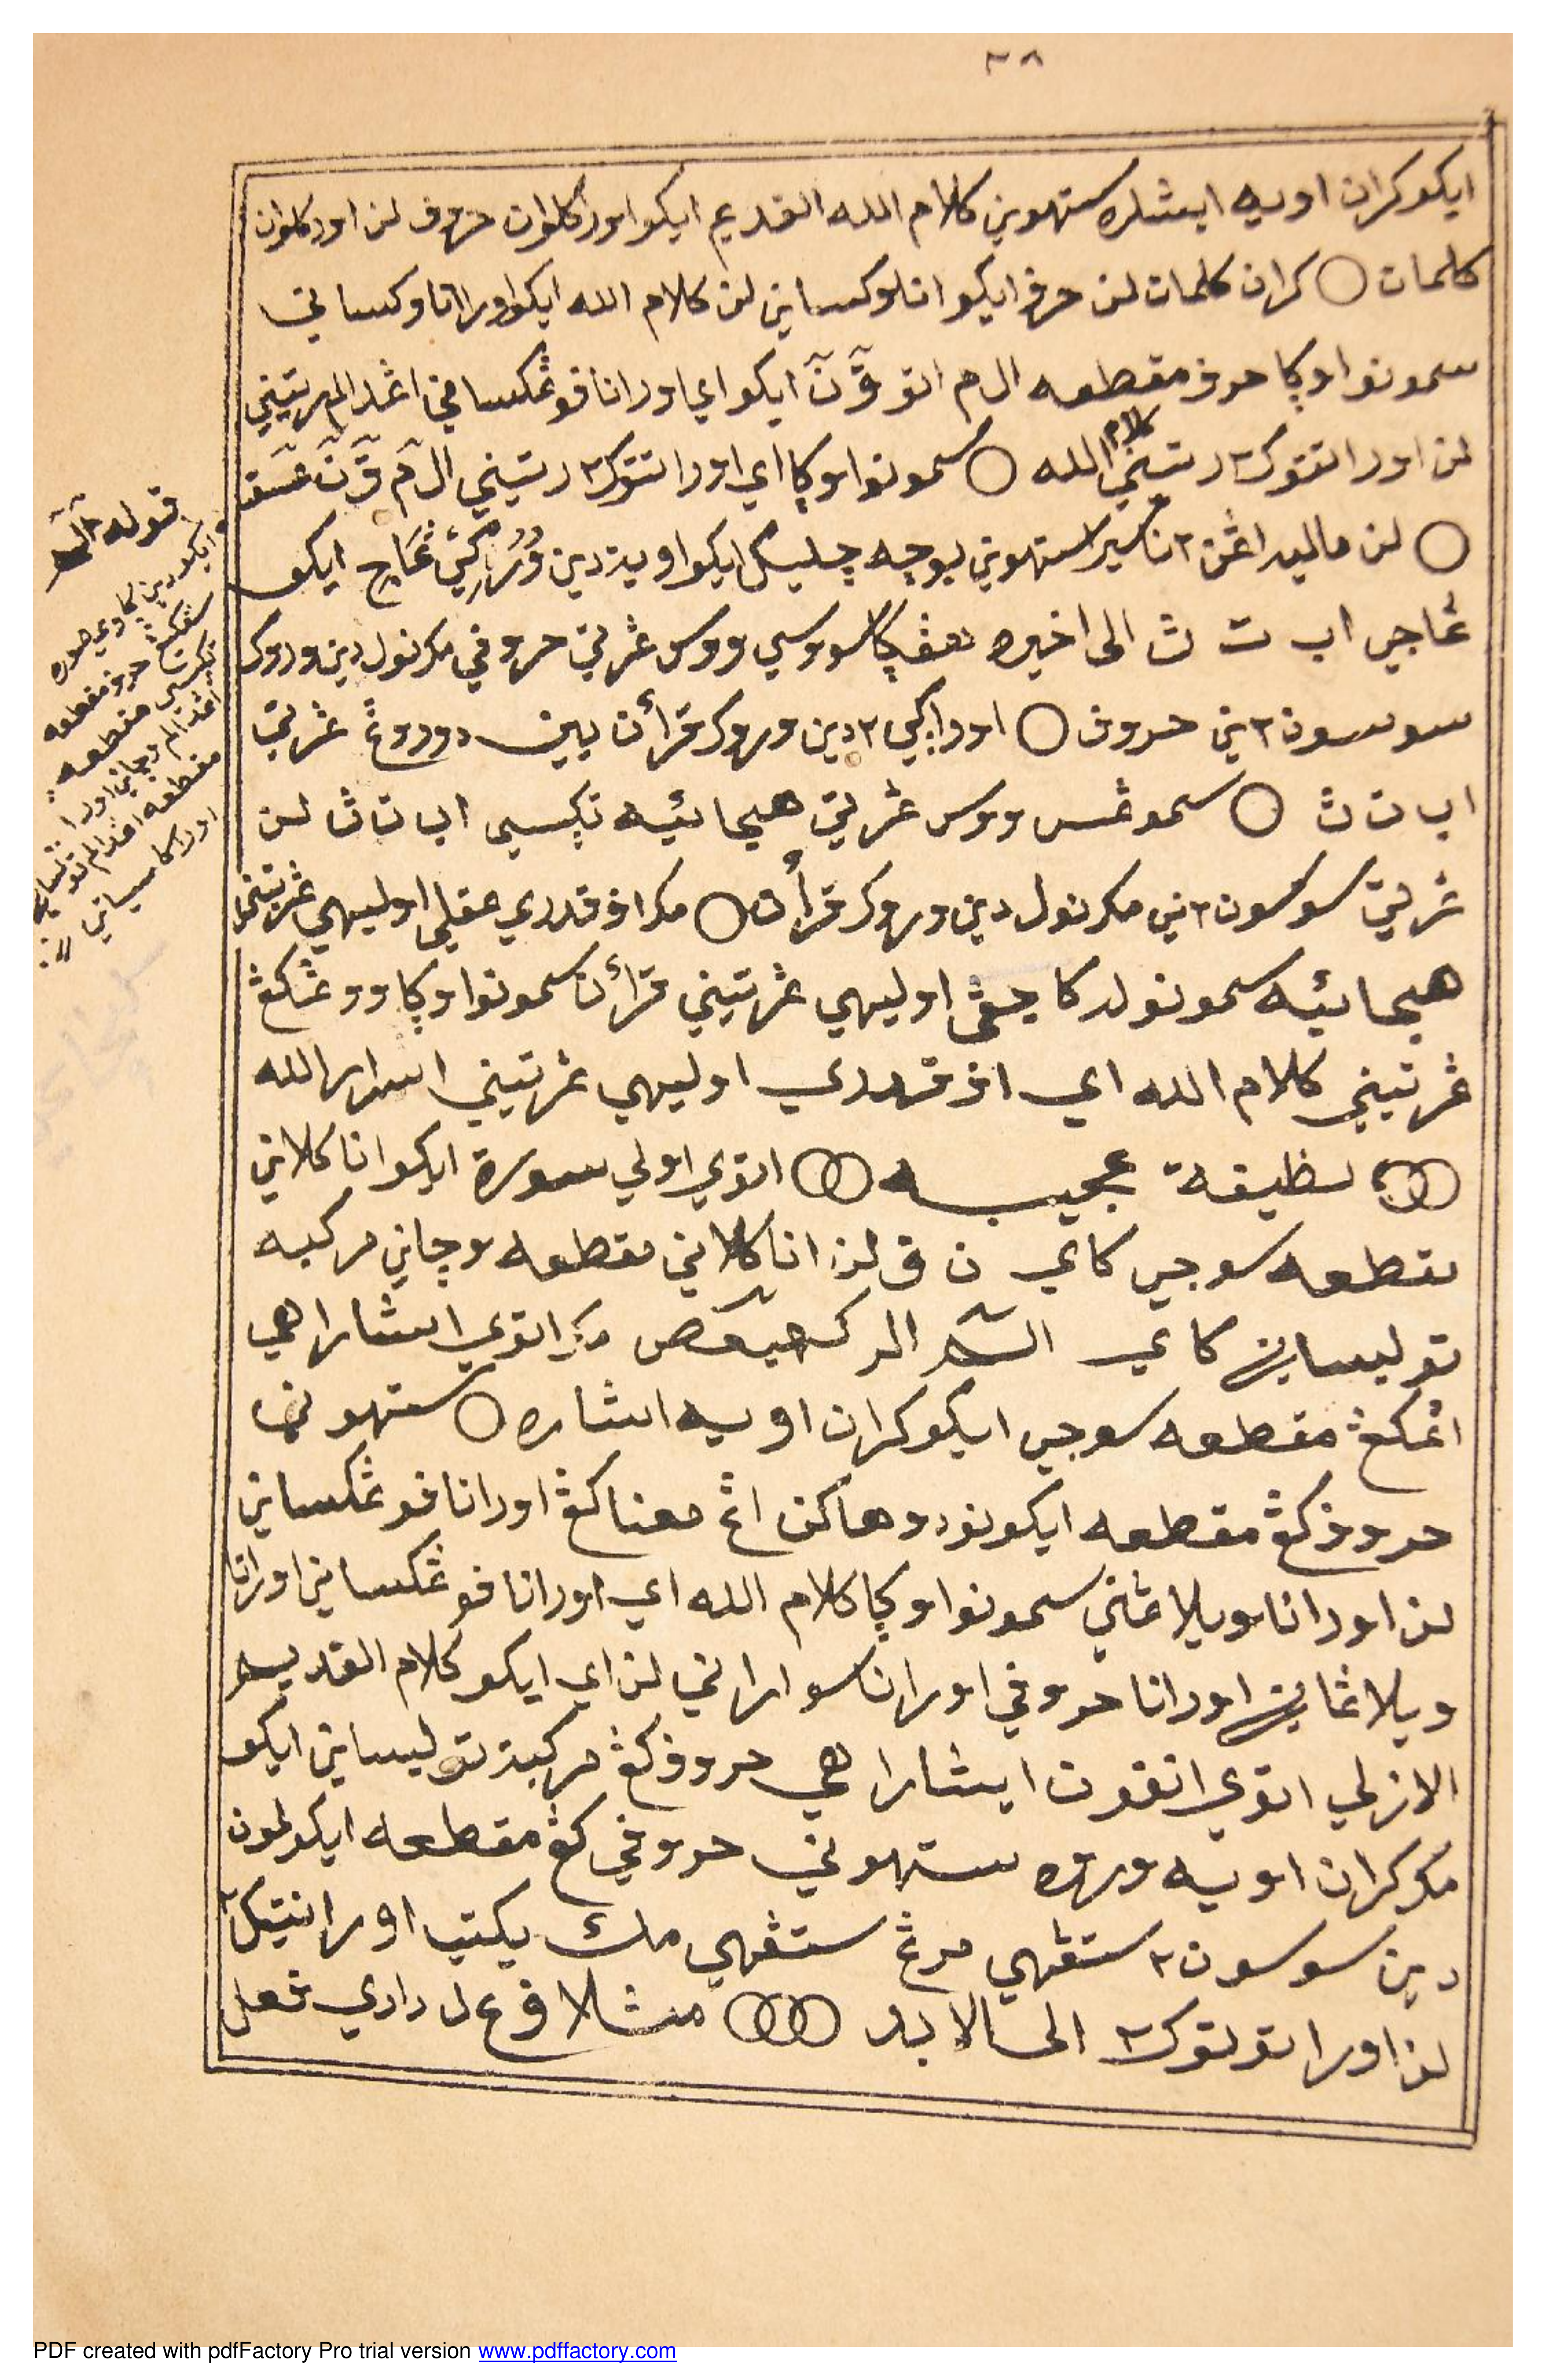 ٣٨
ايكو كران اويه ايشاره ستهوني كلام الله القديم ايكو اورا كلوان حروف لن اورا كلوان
كلمات ○ كران كلمات لن حرف ايكو انا وكساني لن كلام الله ايكو اورا انا وكساني
سمونو اوڮا حرف مقطعه الم اتو قٓ نٓ ايكو اي اورا انا فوڠكساني اڠدالم رتيني
لن اورا انتوك٢ رتيني كلام الله ○ سمونو اوڮا اي اورا انتوك٢ رتيني الٓمٓ قٓ نٓ عٓسٓقٓ
○ لن ماليه اڠن٢ انا سيرا ستهوني بوچه چيليك ايكو اويه دين وُرُوكي ڠاجي ايكو
ڠاجي اب ت ث الى اخيره هڠڮا سووسي ووس ڠرتي حروفي مكونول دين وروك
سوسون٢ني حروف ○ اورا ڮي٢ دين وروك قرأن يين دوروڠ ڠرتي
اب ت ث ○ سموڠسا ووس ڠرتي هيجائيه تڮسي اب ت ث لن
ڠرتي سوسون٢ني مكونول دين وروك قرأن ○ مك اف قدري عقلي اوليهي ڠرتيني
هيجائيه سمونو اوڮا اوليهي ڠرتيني قرأن سمونو اوڮا ووڠكڠ
ڠرتيني كلام الله اي اف قدري اوليهي ڠرتيني اسرار الله
لطيفة عجيبه اتوي اولي سورة ايكو انا كلاني
مقطعه سوجي كاي ن ق لن انا كلاني مقطعه وچاني مركبه
توليساني كاي الٓمٓ المر كهيعص مك اتوي ايشاراهي
اڠكڠ مقطعه سوجي ايكو كران اويه اشاره ○ ستهوني
حروف كڠ مقطعه ايكو نودوهاكن اڠ معنا كڠ اورا انا فوڠكساني
لن اورا انا ويلاڠني سمونو اوڮا كلام الله اي اورا انا فوڠكساني اورا انا
ويلاڠاني اورا انا حروفي اورا انا سواراني لن اي ايكو كلام القديم
الازلي اتوي انفون ايشاراهي حروف كڠ مركبة توليساني ايكو
مك كران اويه وروه ستهوني حروفي كڠ مقطعه ايكو لمون
دين سوسون٢ ستڠهي مرڠ ستڠهي مك يكتي اورا نتيك٢
لن اورا توتوك٢ الى الابد مثلا ف ع ل دادي فعل
قوله الٓمٓ
ايكو دين ڮاوي صوره
سڠكڠ حرف مقطعه
تڮسي مقطعه
اڠدالم وچاني اورا
مقطعه اڠدالم توليساني
اورا كا سياتي
PDF created with pdfFactory Pro trial version www.pdffactory.com